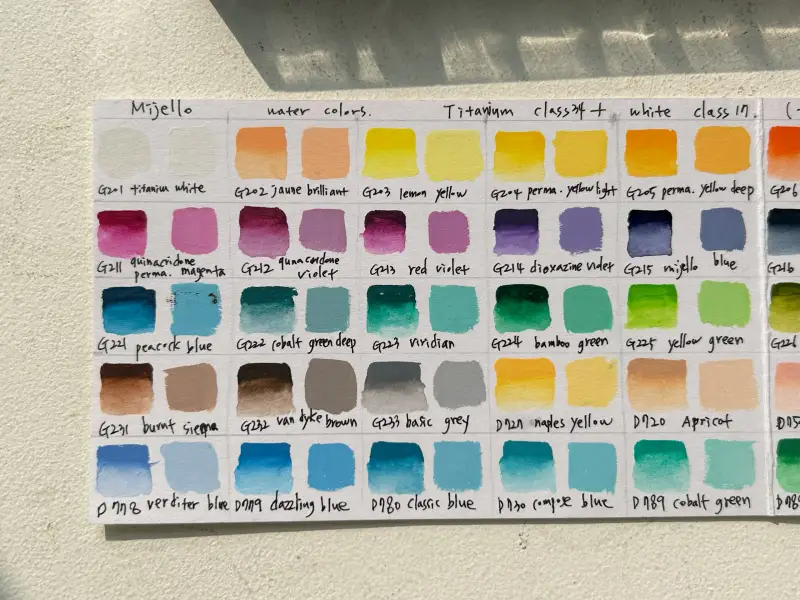 Mijello water colors. Titanium class34+ white class 17. (
G201 titanium white G202 jaune brilliant G203 lemon yellow G204 perma. yellow light G205 perma. yellow deep G206
G211 quinacridone perma. magenta G212 qunacordone violet G213 red violet G214 dioxazine violet G215 mijello blue G216
G221 peacock blue G222 cobalt green deep G223 viridian G224 bamboo green G225 yellow green G226
G231 burnt sienna G232 van dyke brown G233 basic grey D727 naples yellow D720 Apricot D75
D778 verditer blue D779 dazzling blue D780 classic blue D730 compose blue D789 cobalt green D78